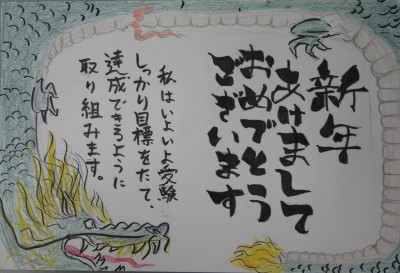 新年
あけまして
おめでとう
ございます
私はいよいよ受験
しっかり目標をたて、
達成できるように
取り組みます。